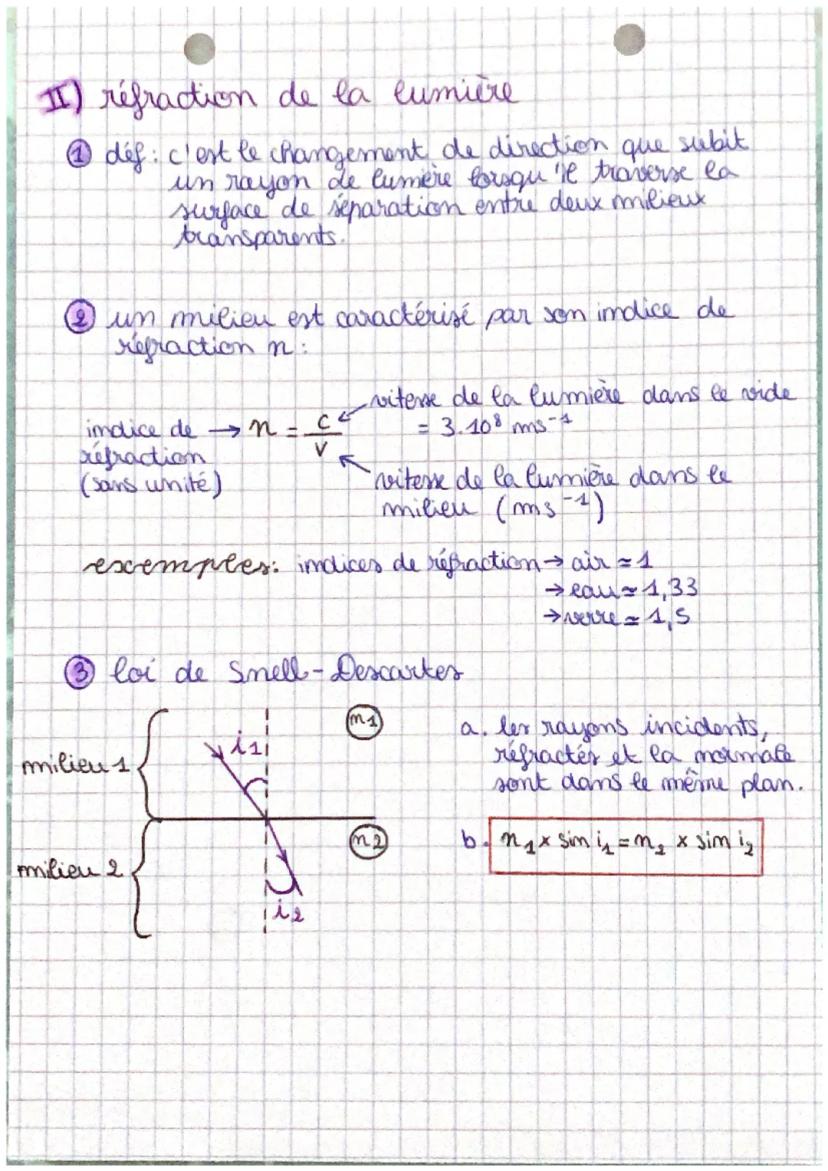 II) réfraction de la lumière
① déf : c'est le changement de direction que subit
un rayon de lumière lorsqu'il traverse la
surface de séparation entre deux milieux
transparents.
② un milieu est caractérisé par son indice de
réfraction n :
vitesse de la lumière dans le vide
= 3.10⁸ ms⁻¹
indice de → n = c/v
réfraction
(sans unité)
vitesse de la lumière dans le
milieu (ms⁻¹)
exemples: indices de réfraction → air ≃ 1
→ eau ≃ 1,33
→ verre ≃ 1,5
③ loi de Snell-Descartes
milieu 1
i₁
n1
milieu 2
n2
i₂
a. les rayons incidents,
réfractés et la normale
sont dans le même plan.
b. n₁ x sin i₁ = n₂ x sin i₂